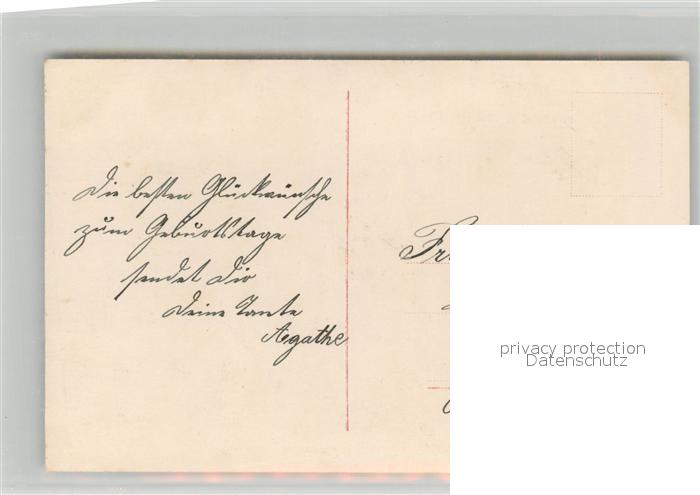 Die besten Glückwünsche
zum Geburtstage
sendet Dir
Deine Tante
Agathe
privacy protection
Datenschutz